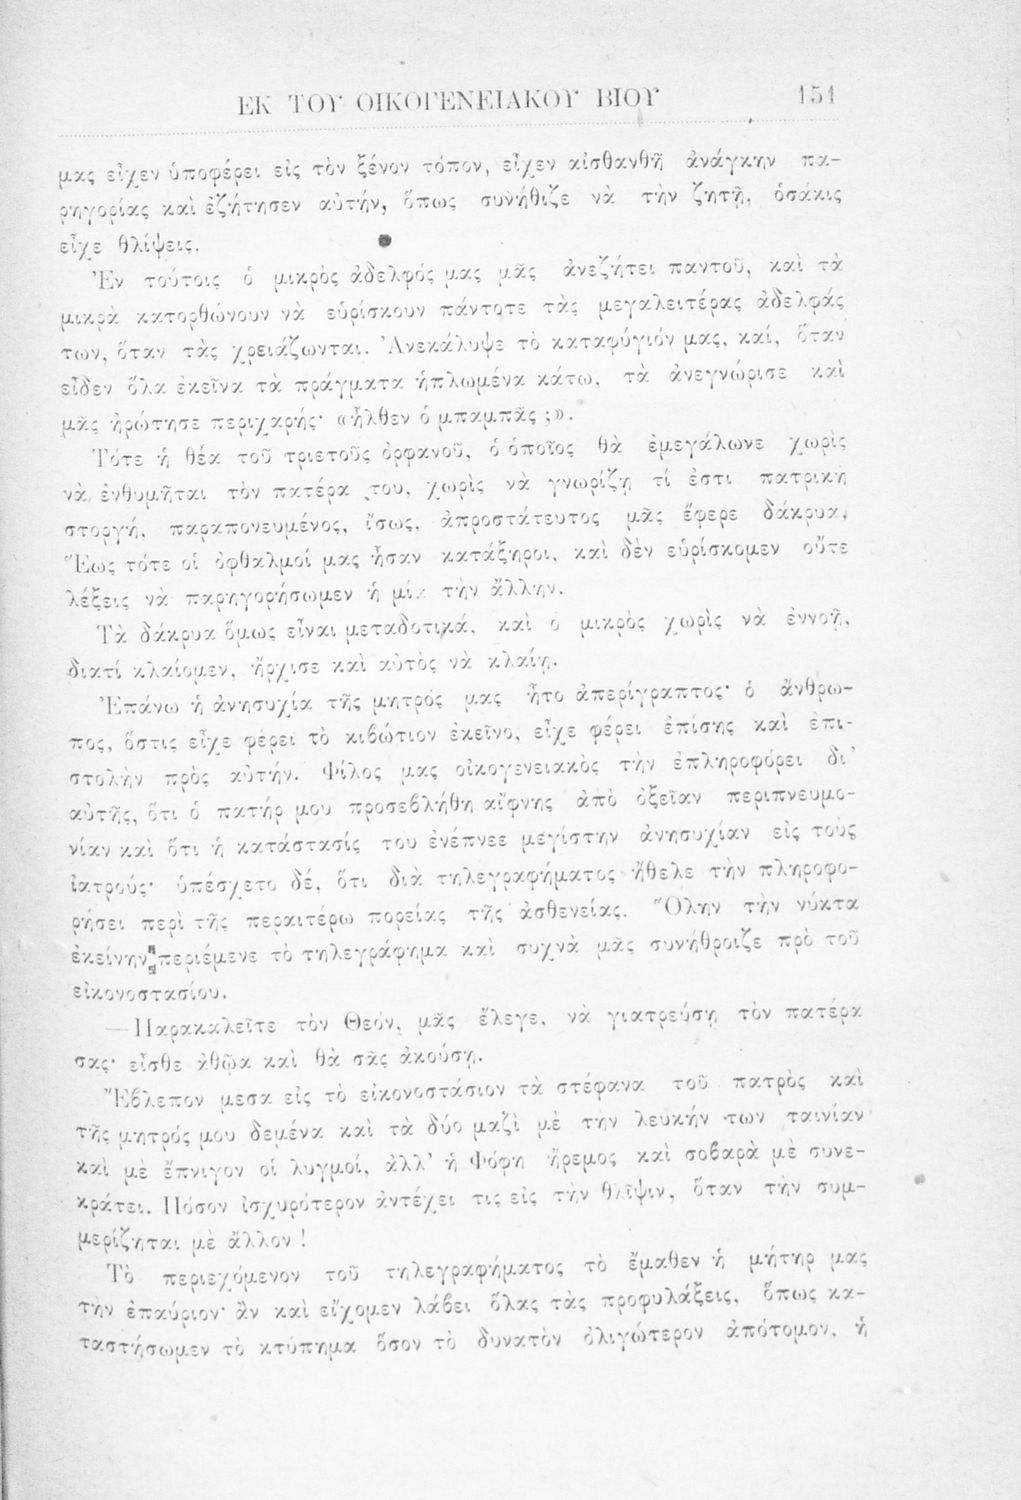 ΕΚ ΤΟΥ ΟΙΚΟΓΕΝΕΙΑΚΟΥ ΒΙΟΥ 151
μας εἶχεν ὑποφέρει εἰς τὸν ξένον τόπον, εἶχεν αἰσθανθῆ ἀνάγκην πα-
ρηγορίας καὶ ἐζήτησεν αὐτήν, ὅπως συνήθιζε νὰ τὴν ζητῇ, ὁσάκις
εἶχε θλίψεις.
Ἐν τούτοις ὁ μικρὸς ἀδελφός μας μᾶς ἀνεζήτει παντοῦ, καὶ τὰ
μικρὰ κατορθώνουν νὰ εὑρίσκουν πάντοτε τὰς μεγαλειτέρας ἀδελφάς
των, ὅταν τὰς χρειάζωνται. Ἀνεκάλυψε τὸ καταφύγιόν μας, καί, ὅταν
εἶδεν ὅλα ἐκεῖνα τὰ πράγματα ἡπλωμένα κάτω, τὰ ἀνεγνώρισε καὶ
μᾶς ἠρώτησε περιχαρής· «ἦλθεν ὁ μπαμπᾶς ;».
Τότε ἡ θέα τοῦ τριετοῦς ὀρφανοῦ, ὁ ὁποῖος θὰ ἐμεγάλωνε χωρὶς
νὰ ἐνθυμῆται τὸν πατέρα του, χωρὶς νὰ γνωρίζῃ τί ἐστι πατρικὴ
στοργή, παραπονευμένος, ἴσως, ἀπροστάτευτος μᾶς ἔφερε δάκρυα,
Ἕως τότε οἱ ὀφθαλμοί μας ἦσαν κατάξηροι, καὶ δὲν εὑρίσκομεν οὔτε
λέξεις νὰ παρηγορήσωμεν ἡ μία τὴν ἄλλην.
Τὰ δάκρυα ὅμως εἶναι μεταδοτικά, καὶ ὁ μικρὸς χωρὶς νὰ ἐννοῇ,
διατί κλαίομεν, ἤρχισε καὶ αὐτὸς νὰ κλαίῃ.
Ἐπάνω ἡ ἀνησυχία τῆς μητρός μας ἦτο ἀπερίγραπτος· ὁ ἄνθρω-
πος, ὅστις εἶχε φέρει τὸ κιβώτιον ἐκεῖνο, εἶχε φέρει ἐπίσης καὶ ἐπι-
στολὴν πρὸς αὐτήν. Φίλος μας οἰκογενειακὸς τὴν ἐπληροφόρει δι'
αὐτῆς, ὅτι ὁ πατήρ μου προσεβλήθη αἴφνης ἀπὸ ὀξεῖαν περιπνευμο-
νίαν καὶ ὅτι ἡ κατάστασίς του ἐνέπνεε μεγίστην ἀνησυχίαν εἰς τοὺς
ἰατρούς· ὑπέσχετο δέ, ὅτι διὰ τηλεγραφήματος ἤθελε τὴν πληροφο-
ρήσει περὶ τῆς περαιτέρω πορείας τῆς ἀσθενείας. Ὅλην τὴν νύκτα
ἐκείνην περιέμενε τὸ τηλεγράφημα καὶ συχνὰ μᾶς συνήθροιζε πρὸ τοῦ
εἰκονοστασίου.
—Παρακαλεῖτε τὸν Θεόν, μᾶς ἔλεγε, νὰ γιατρεύσῃ τὸν πατέρα
σας· εἶσθε ἀθῷα καὶ θὰ σᾶς ἀκούσῃ.
Ἔβλεπον μεσα εἰς τὸ εἰκονοστάσιον τὰ στέφανα τοῦ πατρὸς καὶ
τῆς μητρός μου δεμένα καὶ τὰ δύο μαζὶ μὲ τὴν λευκήν των ταινίαν
καὶ μὲ ἔπνιγον οἱ λυγμοί, ἀλλ' ἡ Φόφη ἤρεμος καὶ σοβαρὰ μὲ συνε-
κράτει. Πόσον ἰσχυρότερον ἀντέχει τις εἰς τὴν θλῖψιν, ὅταν τὴν συμ-
μερίζηται μὲ ἄλλον !
Τὸ περιεχόμενον τοῦ τηλεγραφήματος τὸ ἔμαθεν ἡ μήτηρ μας
τὴν ἐπαύριον· ἂν καὶ εἴχομεν λάβει ὅλας τὰς προφυλάξεις, ὅπως κα-
ταστήσωμεν τὸ κτύπημα ὅσον τὸ δυνατὸν ὀλιγώτερον ἀπότομον, ἡ